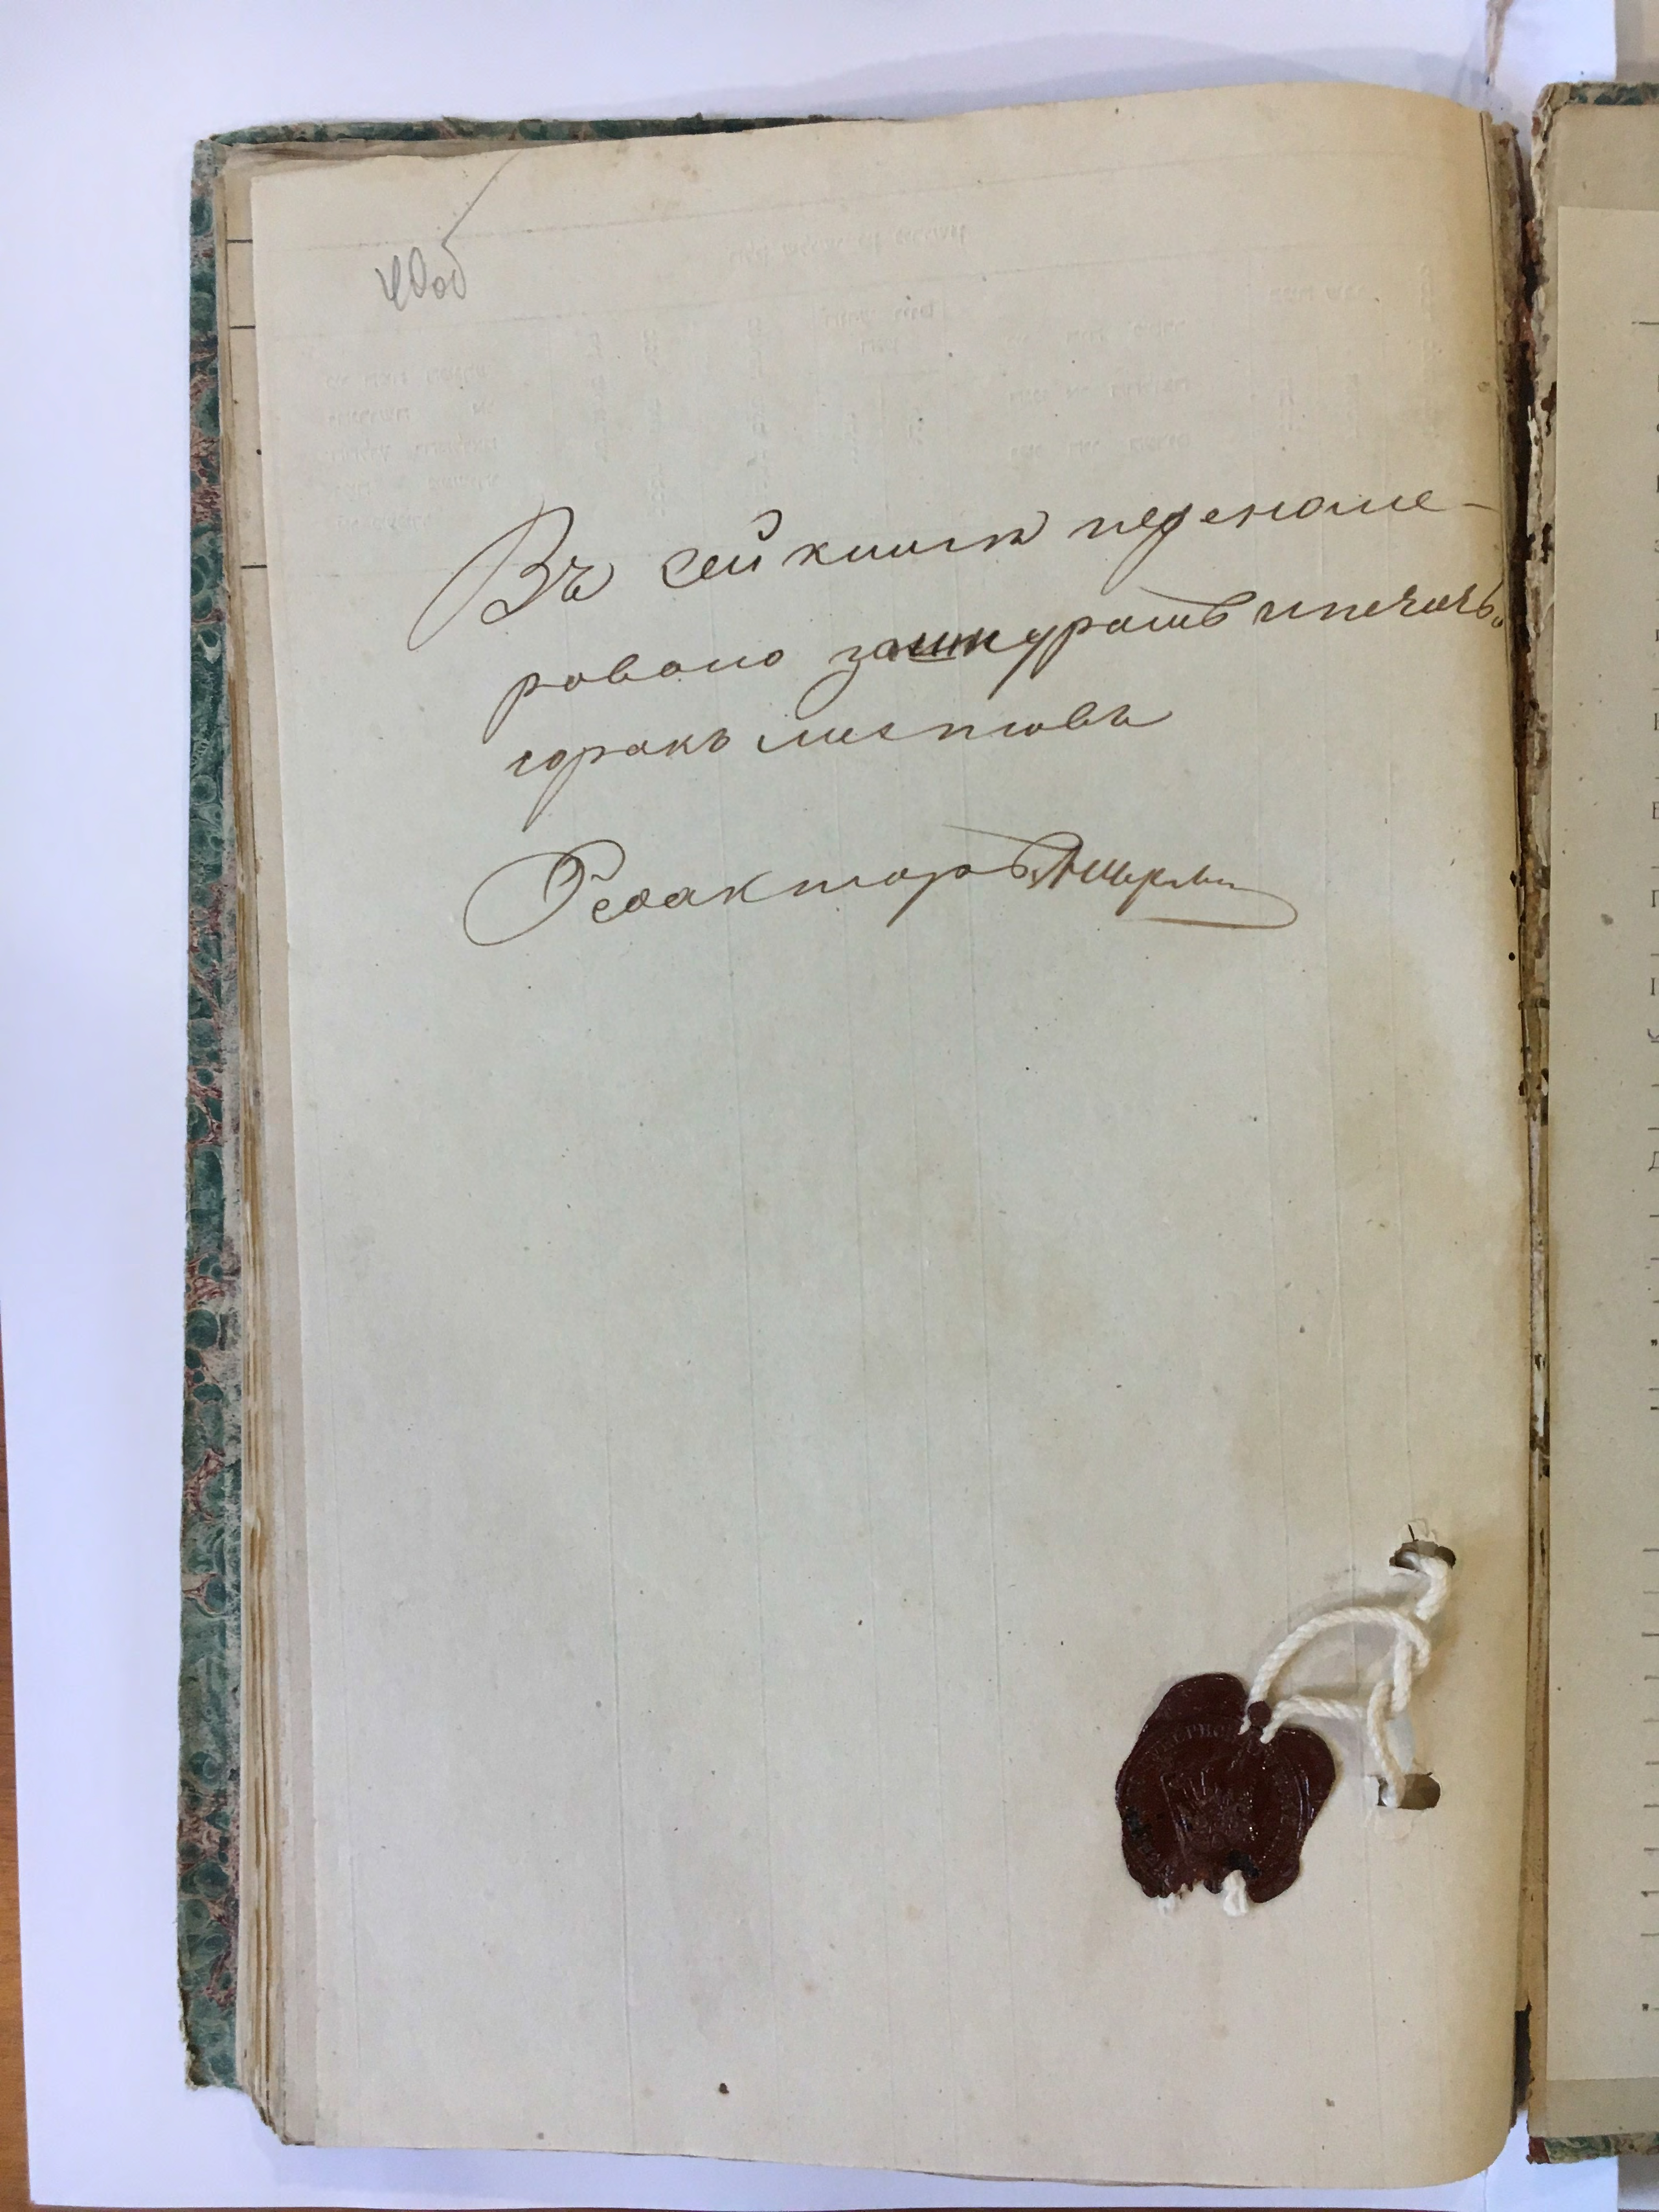 40об
Въ сей книгѣ переноме-
ровано зашнуровано и печать
сорокъ листовъ
Редакторъ